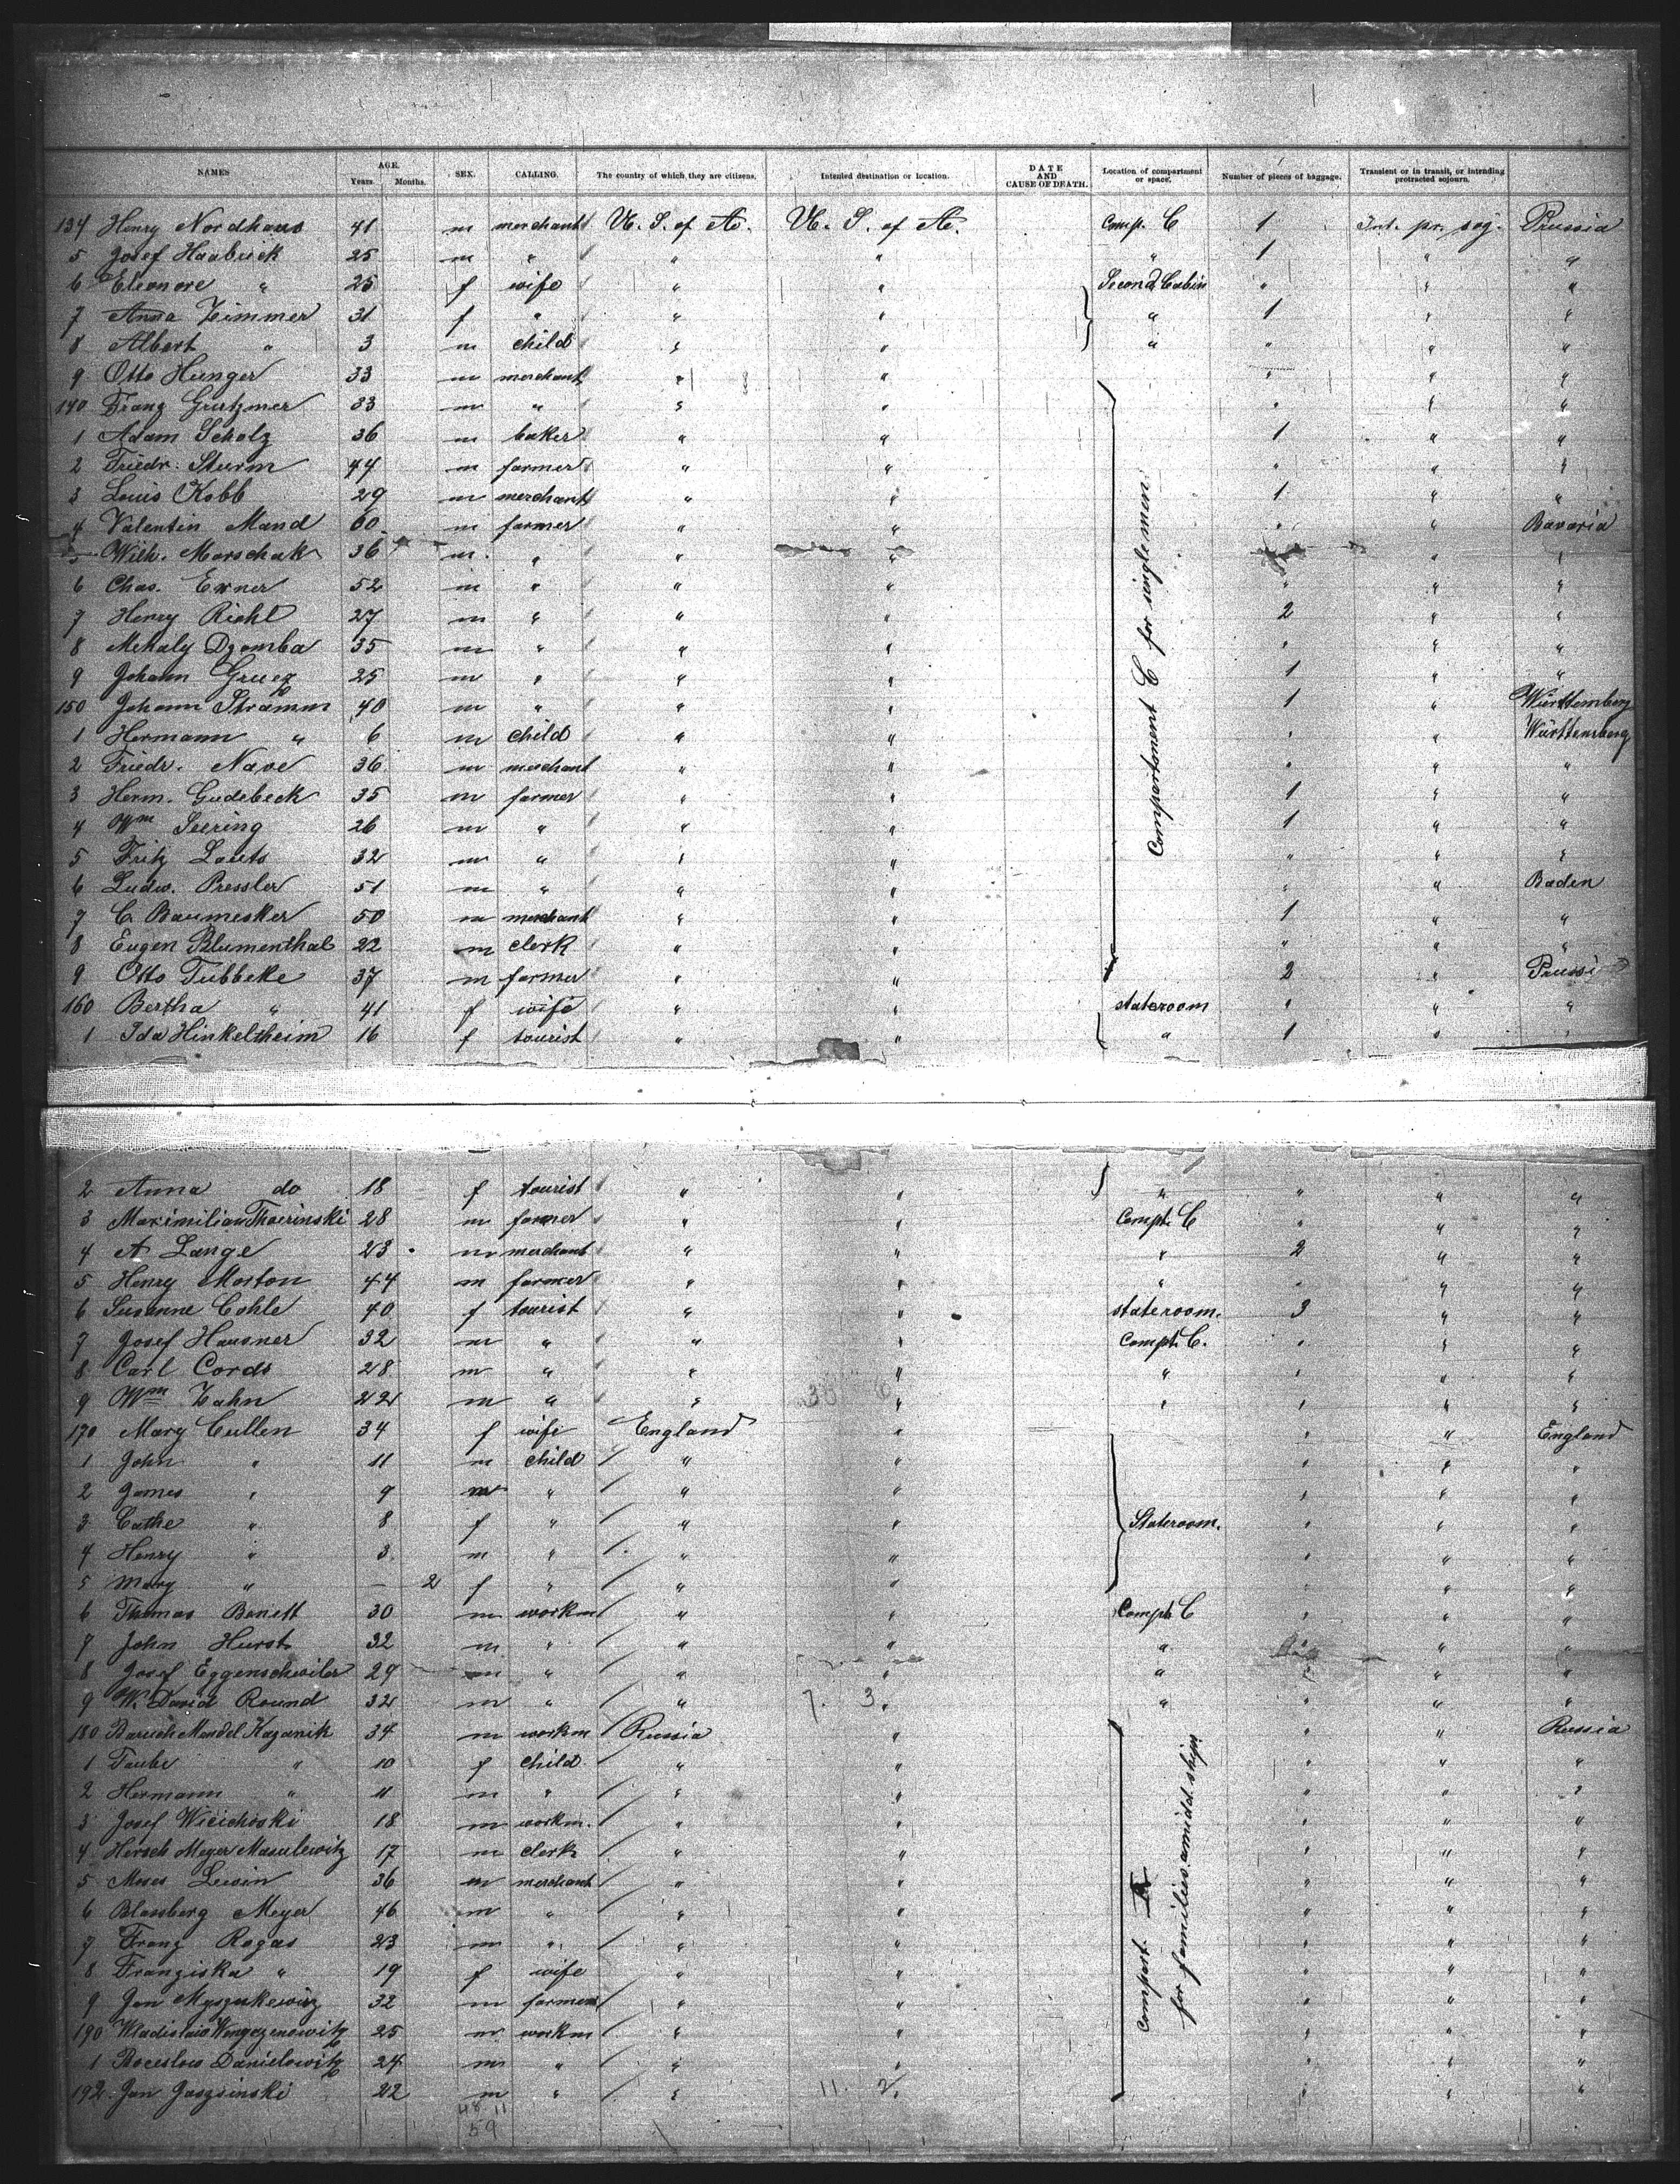 NAMES AGE. Years. Months. SEX. CALLING. The country of which they are citizens. Intended destination or location. DATE AND CAUSE OF DEATH. Location of compartment or space. Number of pieces of baggage. Transient or in transit, or intending protracted sojourn.
134 Henry Nordhaus 41 m merchant U. S. of A. U. S. of A. Comp. C 1 Int. pr. soj. Prussia
5 Josef 25 m " " " " 1 " "
6 Eleonore " 25 f wife " " Second Cabin " " "
7 Anna Zimmer 31 f " " " " 1 " "
8 Albert " 3 m child " " " " " "
9 Otto Hunger 33 m merchant " " " " "
140 Franz Grützmer 33 m " " " " " "
1 Adam Scholz 36 m baker " " 1 " "
2 Friedr. Sturm 44 m farmer " " " " "
3 Louis Kobb 29 m merchant " " 1 " "
4 Valentin Mand 60 m farmer " " " " Bavaria
5 Wilh. Marschak 36 m " " " " "
6 Chas. Exner 52 m " " " " " "
7 Henry Richl 27 m " " " 2 " "
8 Mehaly Dzomba 35 m " " " " " "
9 Johann Gruez 25 m " " " 1 " "
150 Johann Stramm 40 m " " " 1 " Württemberg
1 Hermann " 6 m child " " " " Württemberg
2 Friedr. Nave 36 m merchant " " " " "
3 Herm. Gudebeck 35 m farmer " " 1 " "
4 Wm Seering 26 m " " " 1 " "
5 Fritz Lauts 32 m " " " " " "
6 Ludw. Pressler 51 m " " " " " Baden
7 C. Baumesker 50 m merchant " " 1 " "
8 Eugen Blumenthal 22 m clerk " " " " "
9 Otto Tubbeke 37 m farmer " " 2 " Prussia
160 Bertha " 41 f wife " " stateroom " " "
1 Ida Hinkeltheim 16 f tourist " " " 1 " "
Compartment C for single men
2 Anna do 18 f tourist " " " " " "
3 Maximilian Thoerinski 28 m farmer " " Compt. C " " "
4 A Lange 23 m merchant " " " 2 " "
5 Henry Morton 44 m farmer " " " " " "
6 Susanne Cohle 40 f tourist " " stateroom. 3 " "
7 Josef Hausner 32 m " " " Compt. C. " " "
8 Carl Cords 28 m " " " " " " "
9 Wm Zahn 22 m " " " " " " "
170 Mary Cullen 34 f wife England " " " England
1 John " 11 m child " " " " "
2 James " 9 m " " " " " "
3 Cathe " 8 f " " " Stateroom. " " "
4 Henry " 3 m " " " " " "
5 Mary " – 2 f " " " " " "
6 Thomas Barrett 30 m workm " " Compt. C " " "
7 John Hurst 32 m " " " " " "
8 Josef Eggenschwiler 29 m " " " " " " "
9 W. David Round 32 m " " 7. 3. " " " "
180 Baruch Mendel Kazanik 34 m workm Russia " " " Russia
1 Taube " 10 f child " " " " "
2 Hermann " 11 m " " " " " "
3 Josef Wicichoski 18 m workm. " " " " "
4 Hirsch Meyer Masulewitz 17 m clerk " " " " "
5 Moses Lewin 36 m merchant " " " " "
6 Blassberg Meyer 46 m " " " " " "
7 Franz Rogas 23 m " " " " " "
8 Franziska " 19 f wife " " " " "
9 Jan 32 m farmer " " " " "
190 Wladislaw 25 m workm " " " " "
1 Boceslow Danielowitz 24 m " " " " " "
192 Jan Jaszsinski 22 m " " 11. 2. " " "
Compart. for families amidd. ships
48 11
59